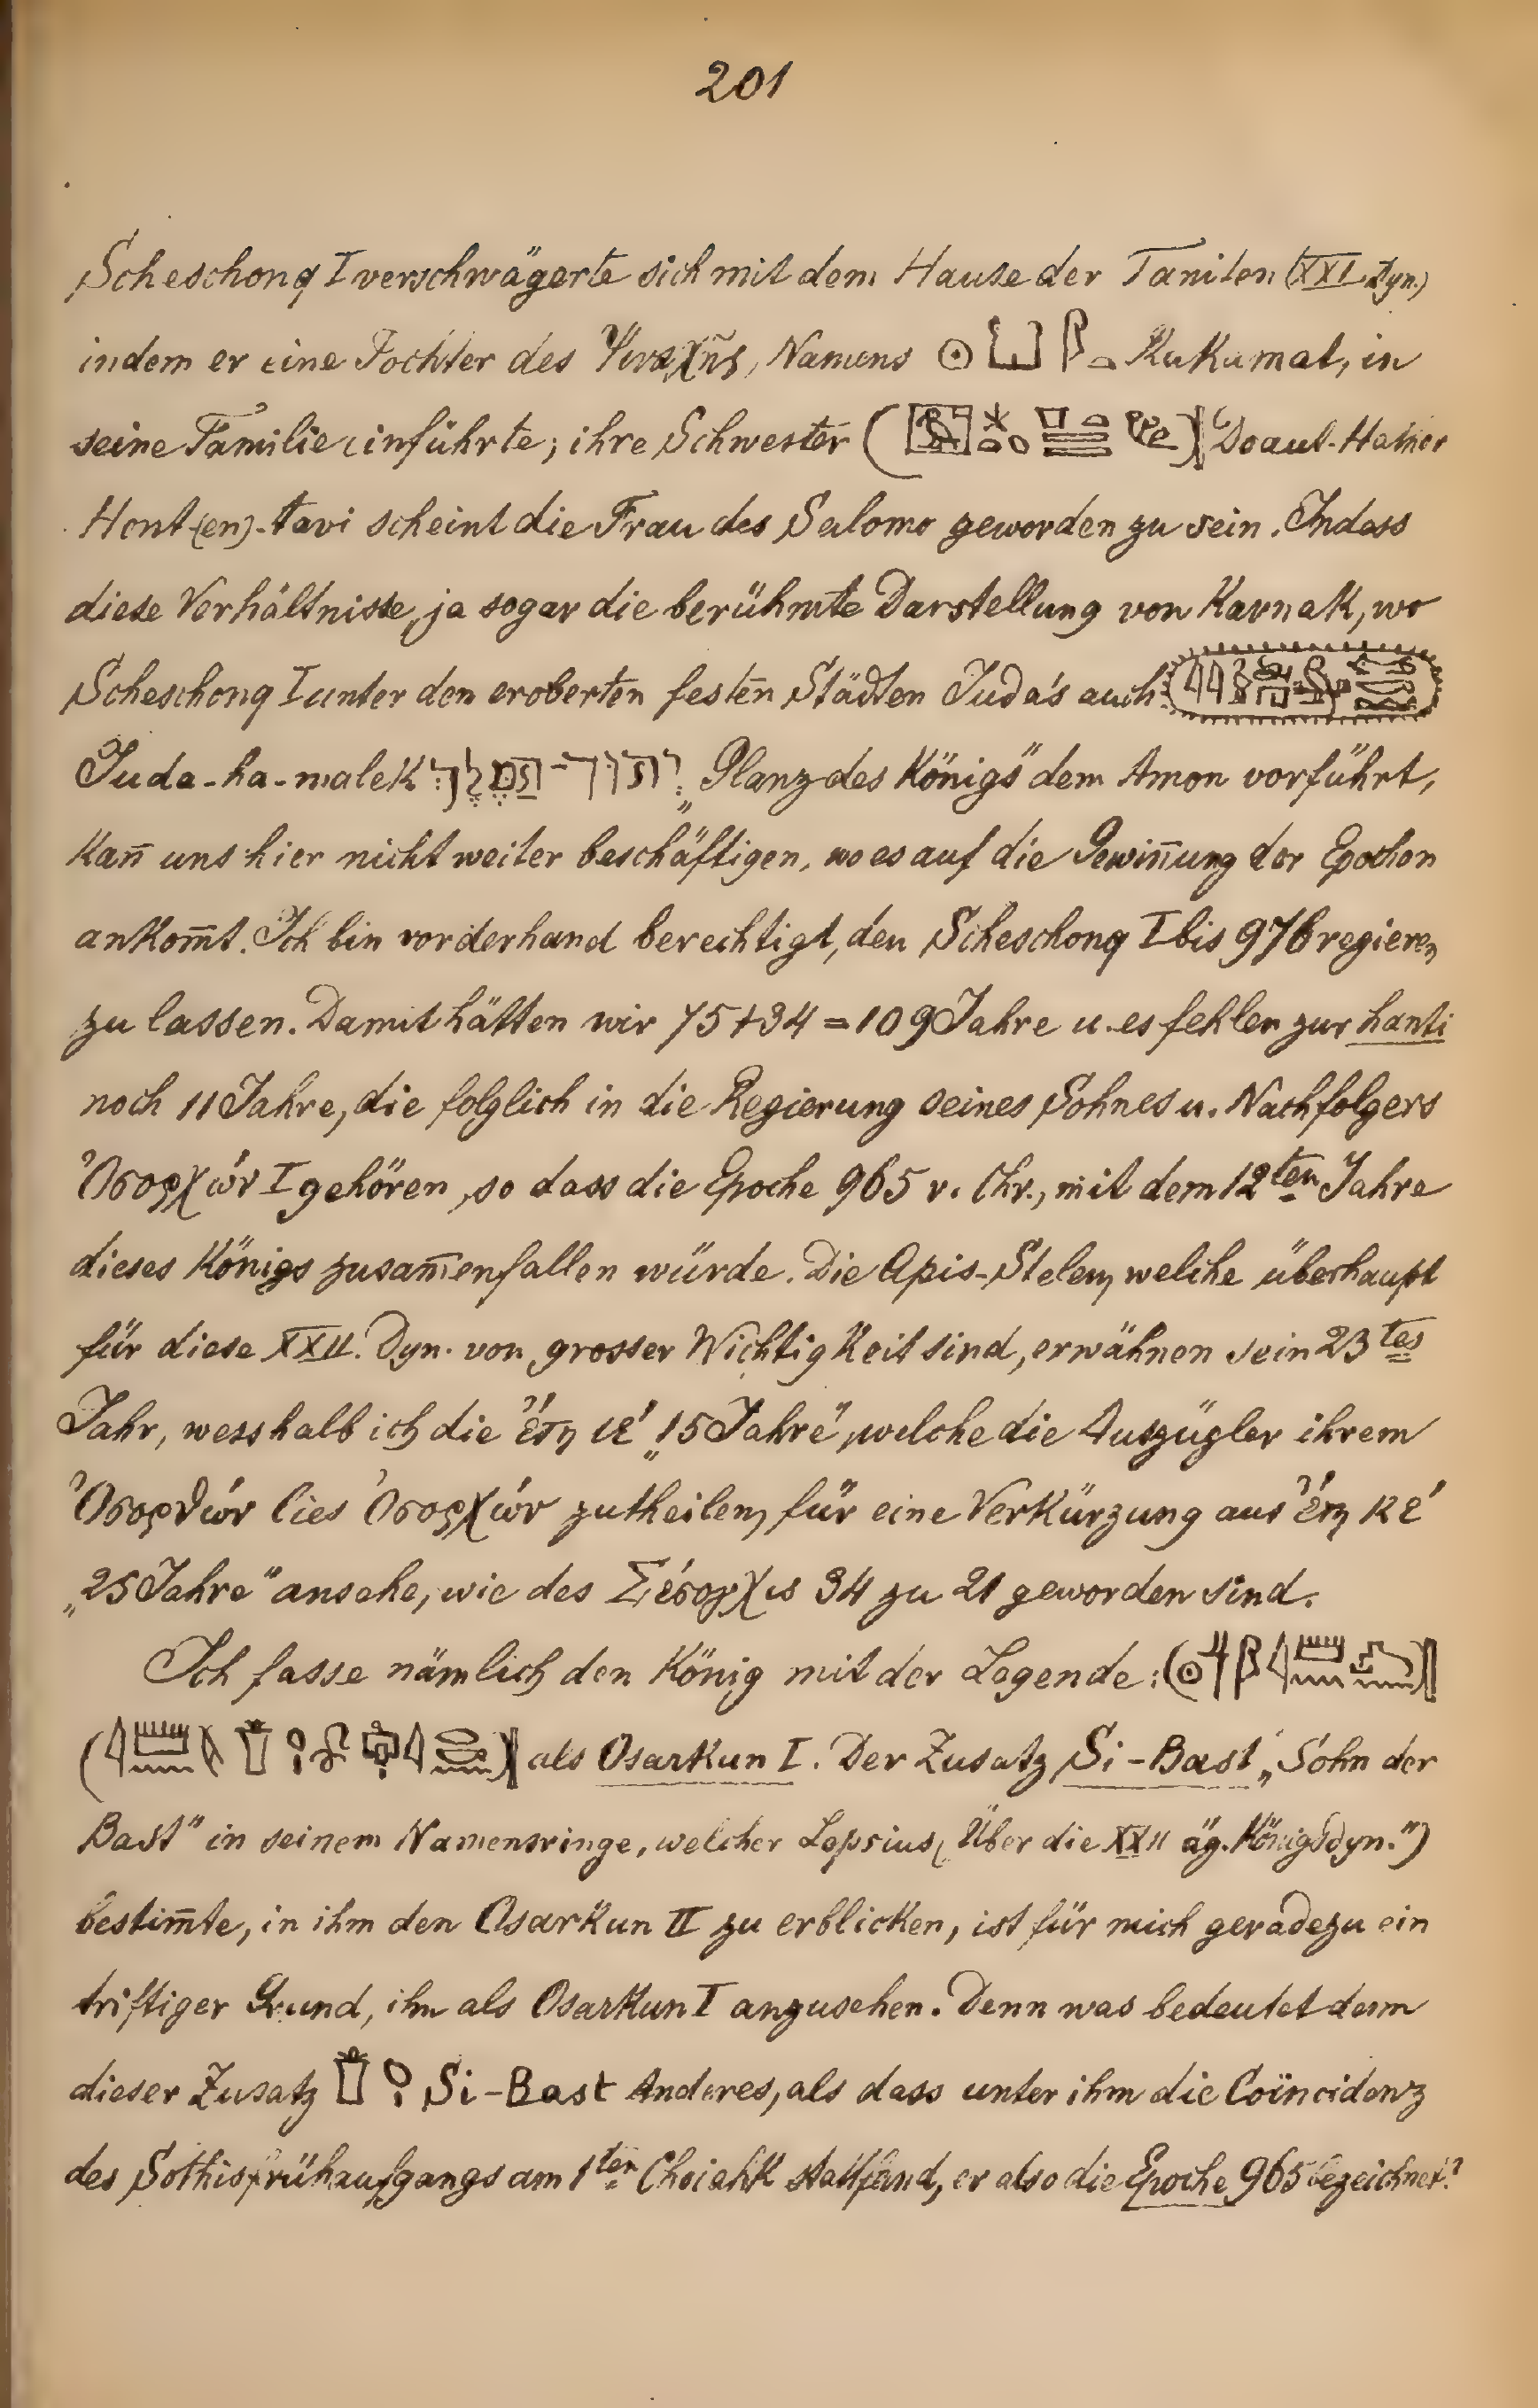 201
Scheschonq I verschwägerte sich mit dem Hause der Taniten (XXI. Dyn.)
indem er eine Tochter des Namens Kakamat, in
seine Familie einführte; ihre Schwester Hathor
Hont-(en)-tavi scheint die Frau des Salomo geworden zu sein. Indess
diese Verhältnisse, ja sogar die berühmte Darstellung von Karnak, wo
Scheschonq I unter den eroberten festen Städten Juda's auch
Juda-ha-malek des Königs" dem Amon vorführt,
kan̄ uns hier nicht weiter beschäftigen, wo es auf die Gewin̄ung der Epochen
ankom̄t. Ich bin vorderhand berechtigt, den Scheschonq I bis 976 regieren
zu lassen. Damit hätten wir 75 + 34 = 109 Jahre u. es fehlen zur hanti
noch 11 Jahre, die folglich in die Regierung seines Sohnes u. Nachfolgers
Ὀσορχών I gehören, so dass die Epoche 965 v. Chr., mit dem 12ten Jahre
dieses Königs zusam̄enfallen würde. Die Apis-Stelen, welche überhaupt
für diese XXII. Dyn. von grosser Wichtigkeit sind, erwähnen sein 23tes
Jahr, wesshalb ich die ἔτη ιέ „15 Jahre", welche die Auszügler ihrem
Ὀσορθών lies Ὀσορχών zutheilen, für eine Verkürzung aus ἔτη κέ
„25 Jahre" ansehe, wie des Σέσογχις 34 zu 21 geworden sind.
Ich fasse nämlich den König mit der Legende:
als Osarkun I. Der Zusatz Si-Bast „Sohn der
Bast" in seinem Namensringe, welcher Lepsius („Über die XXII äg. Königsdyn.")
bestim̄te, in ihm den Osarkun II zu erblicken, ist für mich geradezu ein
triftiger Grund, ihn als Osarkun I anzusehen. Denn was bedeutet denn
dieser Zusatz Si-Bast Anderes, als dass unter ihm die Coïncidenz
des Sothisfrühaufgangs am 1ten Choiahk stattfand, er also die Epoche 965 bezeichnet?